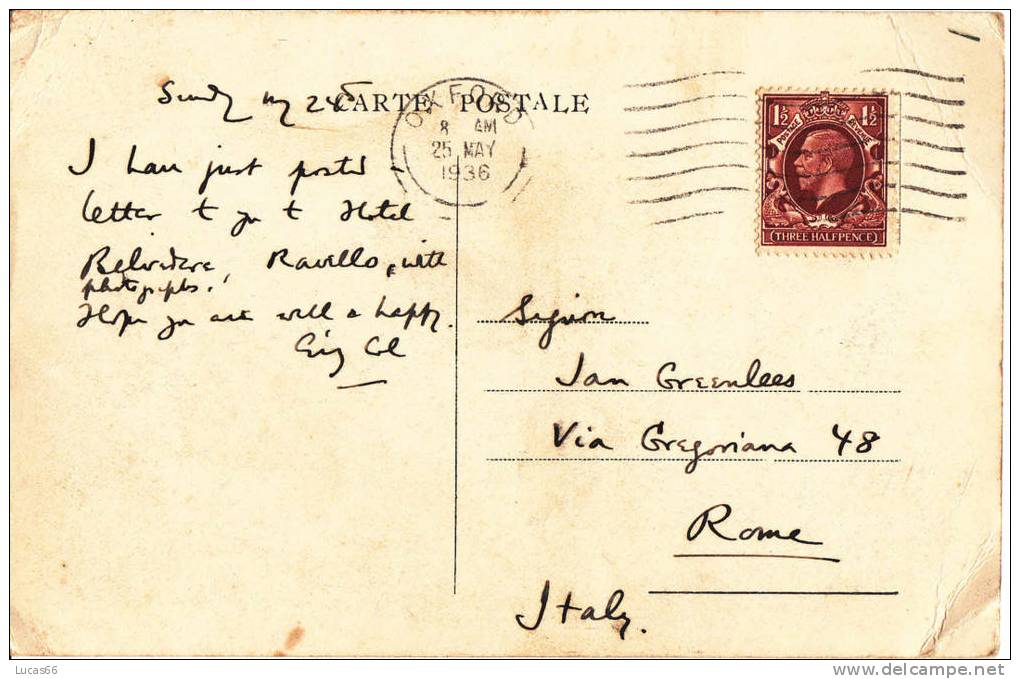 Sunday May 24th
CARTE POSTALE
OXFORD
8 AM
25 MAY
1936
1½ 1½
POSTAGE REVENUE
THREE HALFPENCE
I have just posted a
letter to you to Hotel
Belvedere, Ravello, with
photographs.
Hope you are well & happy.
Signor
Ian Greenlees
Via Gregoriana 48
Rome
Italy.
Lucas66
www.delcampe.net